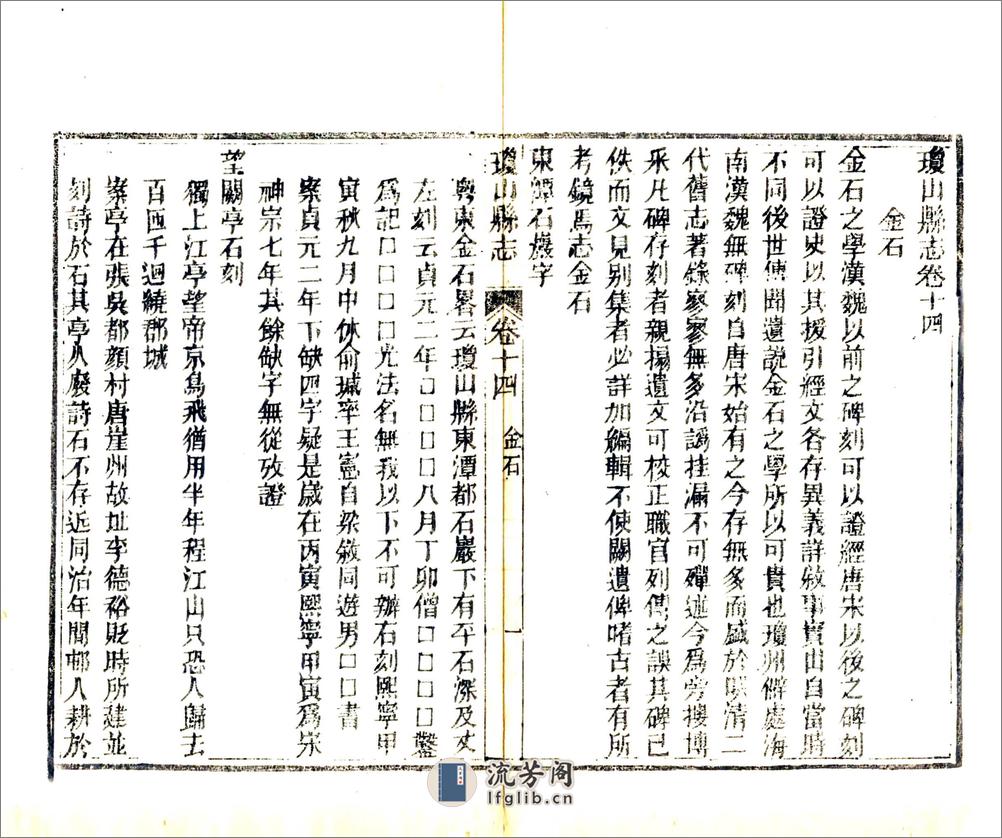 瓊山縣志卷十四
金石
金石之學漢魏以前之碑刻可以證經唐宋以後之碑刻
可以證史以其援引經文各存異義詳敘事實出自當時
不同後世傳聞遺説金石之學所以可貴也瓊州僻處海
南漢魏無碑刻自唐宋始有之今存無多而盛於明清二
代舊志著錄寥寥無多沿譌挂漏不可殫述今爲旁搜博
采凡碑存刻者親搨遺文可校正職官列傳之誤其碑已
佚而文見别集者必詳加編輯不使闕遺俾嗜古者有所
考鏡焉志金石
東潭石巖字
粵東金石畧云瓊山縣東潭都石巖下有平石深及丈
左刻云貞元二年□□□□八月丁卯僧□□□□鑿
爲記□□□□光法名無我以下不可辦右刻熙寧甲
寅秋九月中休俞瑊率王憲自梁敘同遊男□□書
案貞元二年下缺四字疑是歲在丙寅熙寧甲寅爲宋
神宗七年其餘缺字無從攷證
望闕亭石刻
獨上江亭望帝京鳥飛猶用半年程江山只恐人歸去
百匝千迴繞郡城
案亭在張吳都顔村唐崖州故址李德裕貶時所建並
刻詩於石其亭久廢詩石不存近同治年間邨人耕於
瓊山縣志
卷十四
金石
一
流芳阁
lfglib.cn